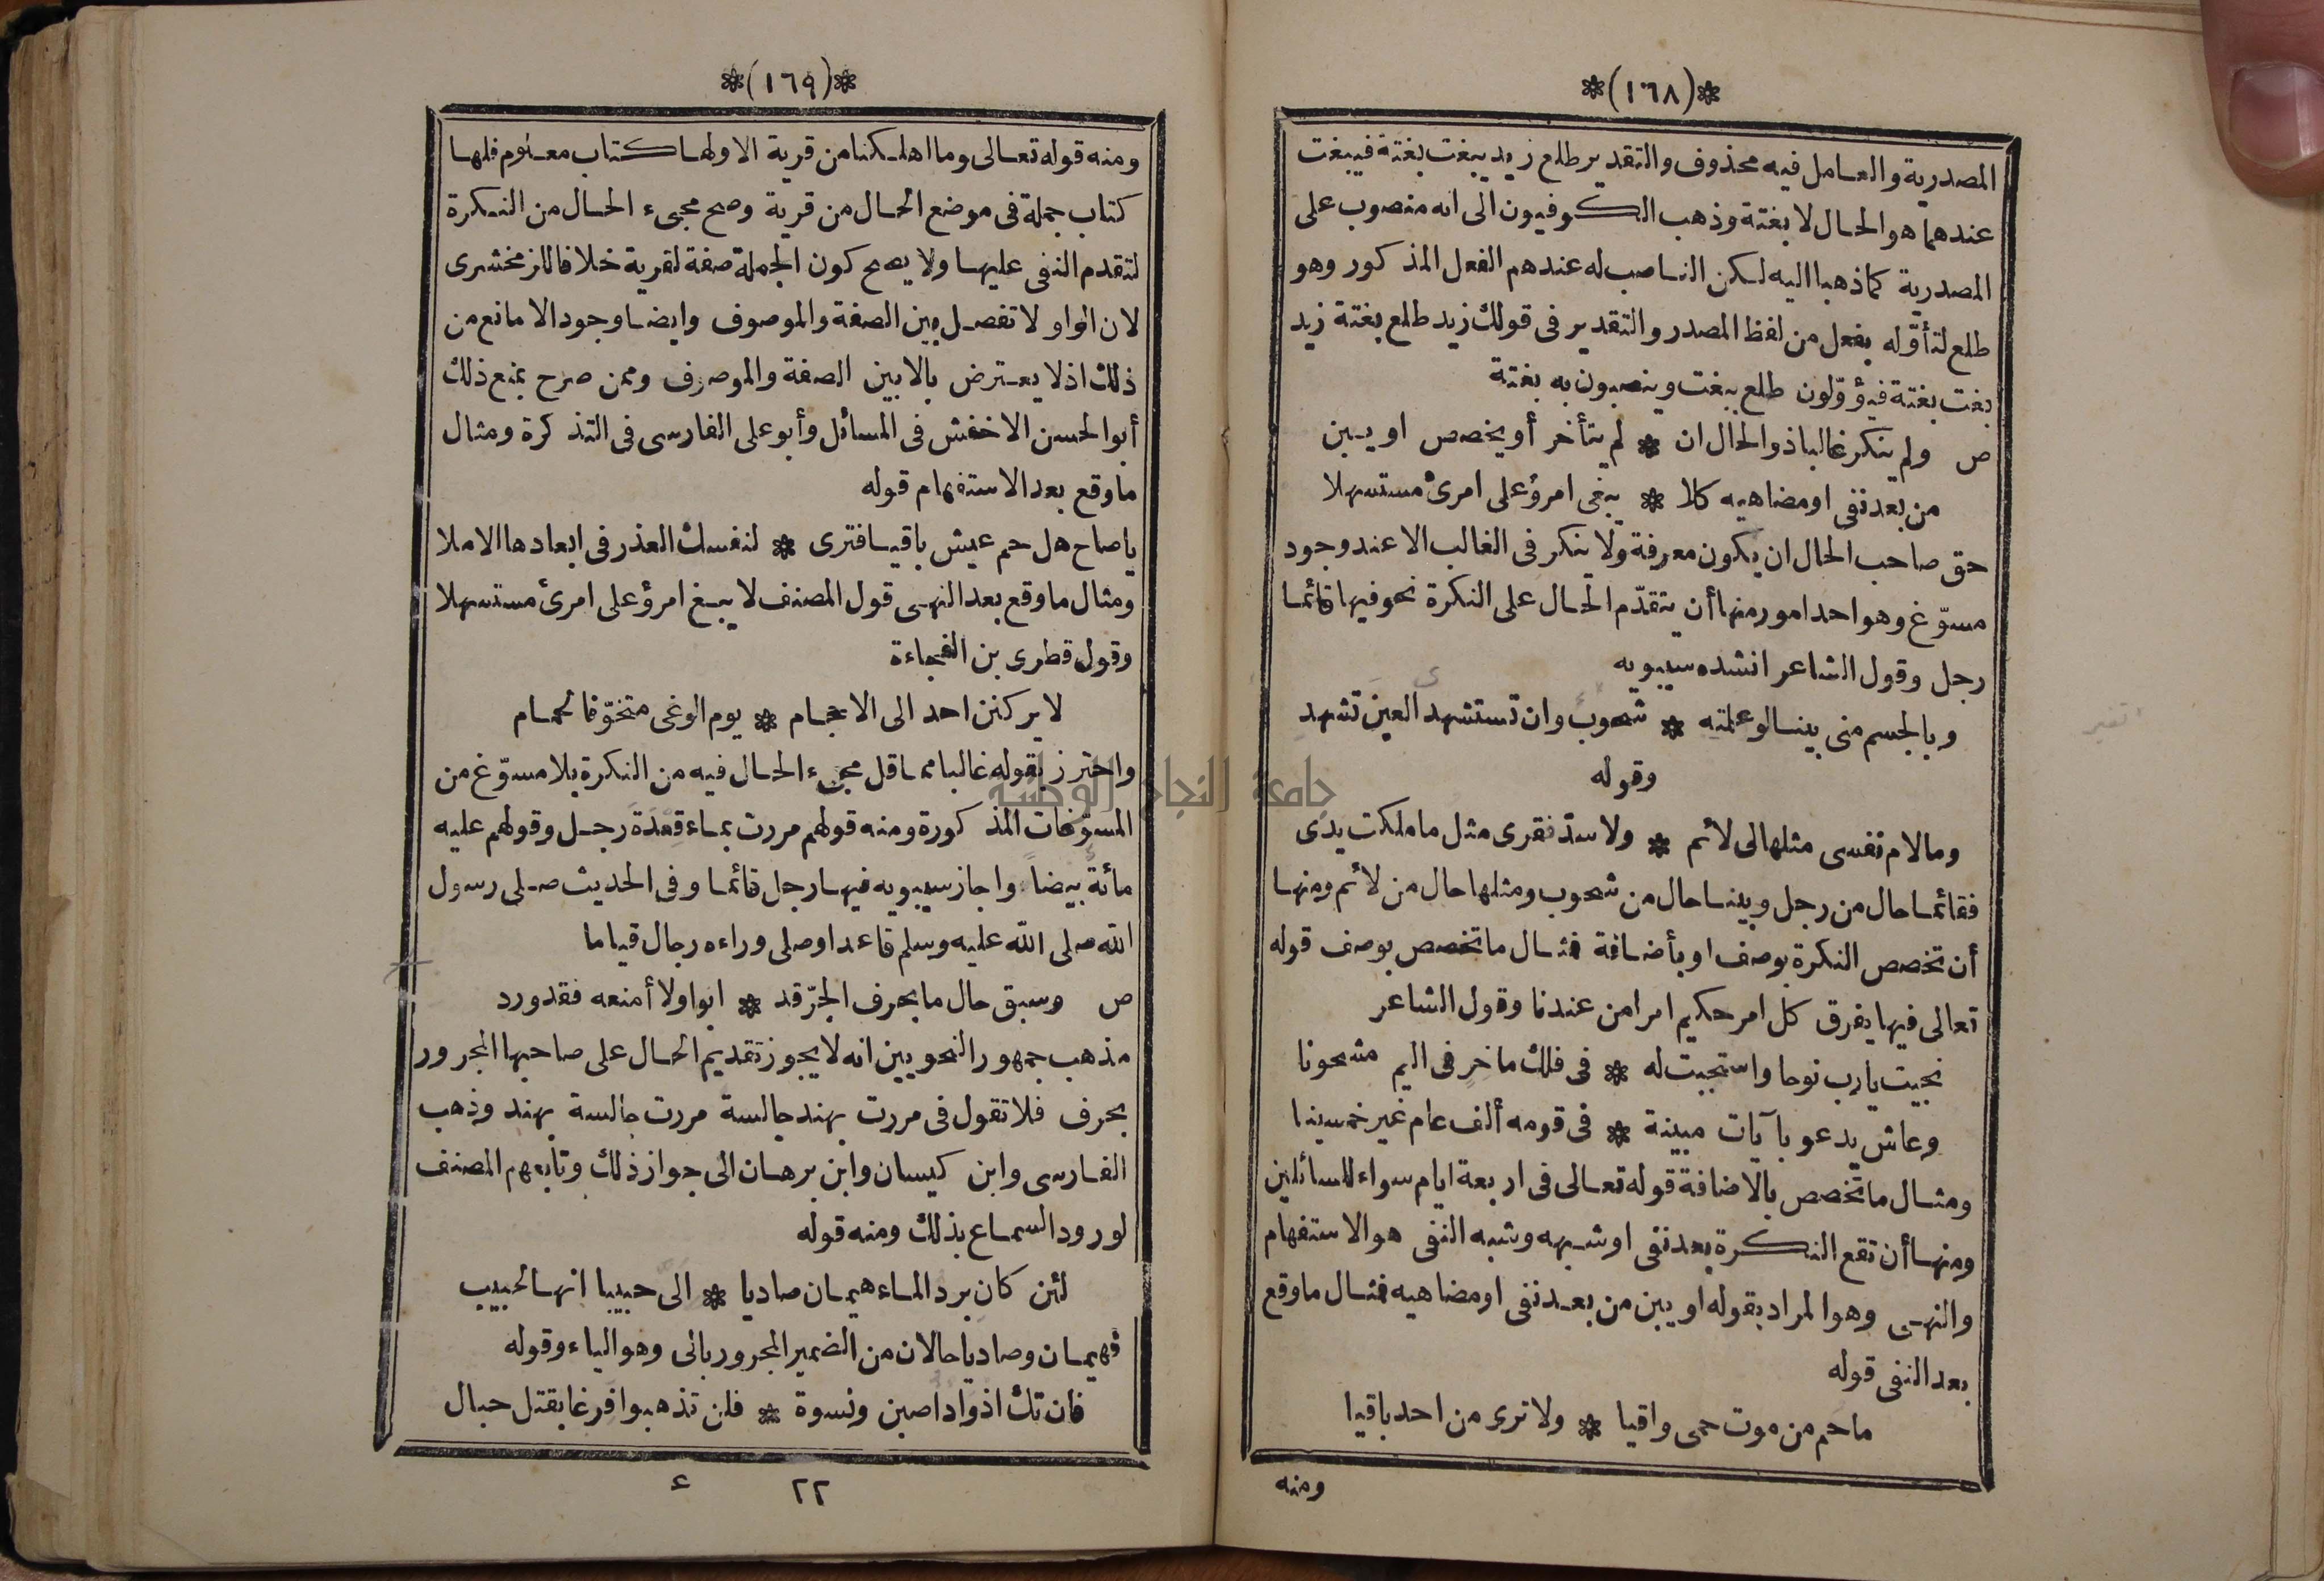 *(١٦٨)*
المصدرية والعامل فيه محذوف والتقدير طلع زيد يبغت بغتة فيبغت
عندهما هو الحال لا بغتة وذهب الكوفيون الى انه منصوب على
المصدرية كما ذهبا اليه لكن الناصب له عندهم الفعل المذكور وهو
طلع لتأوّله بفعل من لفظ المصدر والتقدير فى قولك زيد طلع بغتة زيد
بغت بغتة فيؤوّلون طلع ببغت وينصبون به بغتة
ص ولم ينكر غالبا ذو الحال ان * لم يتأخر أو يخصص او يبن
من بعد نفى او مضاهيه كلا * يبغى امرؤ على امرئ مستسهلا
حق صاحب الحال ان يكون معرفة ولا ينكر فى الغالب الا عند وجود
مسوّغ وهو احد امور منها أن يتقدّم الحال على النكرة نحو فيها قائما
رجل وقول الشاعر انشده سيبويه
وبالجسم منى بينا لو علمته * شحوب وان تستشهد العين تشهد
وقوله
وما لام نفسى مثلها لى لائم * ولا سدّ فقرى مثل ما ملكت يدى
فقائما حال من رجل وبينا حال من شحوب ومثلها حال من لائم ومنها
أن تخصص النكرة بوصف او بأضافة فمثال ما تخصص بوصف قوله
تعالى فيها يفرق كل امر حكيم امرا من عندنا وقول الشاعر
نجيت يارب نوحا واستجبت له * فى فلك ماخر فى اليم مشحونا
وعاش يدعو بآيات مبينة * فى قومه ألف عام غير خمسينا
ومثال ما تخصص بالاضافة قوله تعالى فى اربعة ايام سواء للسائلين
ومنها أن تقع النكرة بعد نفى او شبهه وشبه النفى هو الاستفهام
والنهى وهو المراد بقوله او يبن من بعد نفى او مضاهيه فمثال ما وقع
بعد النفى قوله
ما حم من موت حمى واقيا * ولا ترى من احد باقيا
ومنه
*(١٦٩)*
ومنه قوله تعالى وما اهلكنا من قرية الا ولها كتاب معلوم فلها
كتاب جملة فى موضع الحال من قرية وصح مجىء الحال من النكرة
لتقدم النفى عليها ولا يصح كون الجملة صفة لقرية خلافا للزمخشرى
لان الواو لا تفصل بين الصفة والموصوف وايضا وجود الا مانع من
ذلك اذ لا يعترض بالا بين الصفة والموصوف وممن صرح بمنع ذلك
أبو الحسن الاخفش فى المسائل وأبو على الفارسى فى التذكرة ومثال
ما وقع بعد الاستفهام قوله
يا صاح هل حم عيش باقيا فترى * لنفسك العذر فى ابعادها الاملا
ومثال ما وقع بعد النهى قول المصنف لا يبغ امرؤ على امرئ مستسهلا
وقول قطرى بن الفجاءة
لا يركنن احد الى الاحجام * يوم الوغى متخوّفا لحمام
واحترز بقوله غالبا مما قل مجىء الحال فيه من النكرة بلا مسوّغ من
المسوّغات المذكورة ومنه قولهم مررت بماء قعدة رجل وقولهم عليه
مائة بيضا واجاز سيبويه فيها رجل قائما وفى الحديث صلى رسول
الله صلى الله عليه وسلم قاعدا وصلى وراءه رجال قياما
ص وسبق حال ما بحرف الجرّ قد * ابوا ولا أمنعه فقد ورد
مذهب جمهور النحويين انه لا يجوز تقديم الحال على صاحبها المجرور
بحرف فلا تقول فى مررت بهند جالسة مررت جالسة بهند وذهب
الفارسى وابن كيسان وابن برهان الى جواز ذلك وتابعهم المصنف
لورود السماع بذلك ومنه قوله
لئن كان برد الماء هيمان صاديا * الى حبيبا انها لحبيب
فهيمان وصاديا حالان من الضمير المجرور بالى وهو الياء وقوله
فان تك اذواد اصبن ونسوة * فلن تذهبوا فرغا بقتل حبال
٢٢ ع
جامعة النجاح الوطنية